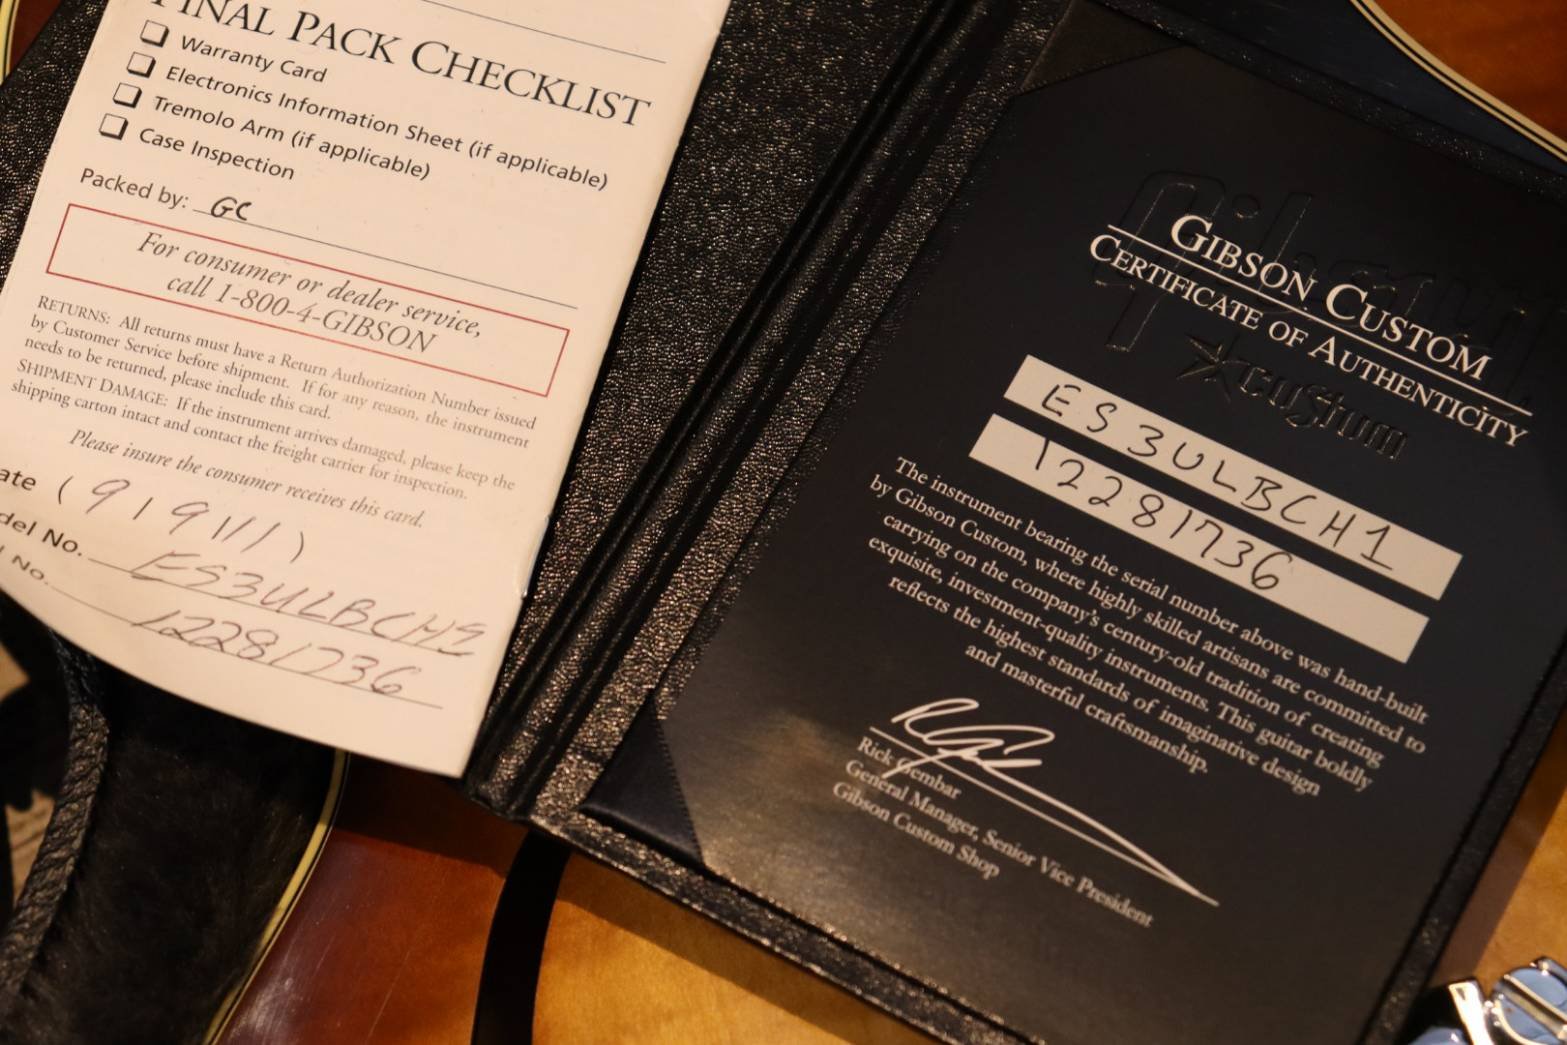 FINAL PACK CHECKLIST
Warranty Card
Electronics Information Sheet (if applicable)
Tremolo Arm (if applicable)
Case Inspection
Packed by: GC
For consumer or dealer service,
call 1-800-4-GIBSON
RETURNS: All returns must have a Return Authorization Number issued
by Customer Service before shipment. If for any reason, the instrument
needs to be returned, please include this card.
SHIPMENT DAMAGE: If the instrument arrives damaged, please keep the
shipping carton intact and contact the freight carrier for inspection.
Please insure the consumer receives this card.
ate (9/9/11)
del No. ES3ULBCHS
No. 12281736
Gibson
custom
GIBSON CUSTOM
CERTIFICATE OF AUTHENTICITY
ES3ULBCH1
12281736
The instrument bearing the serial number above was hand-built
by Gibson Custom, where highly skilled artisans are committed to
carrying on the company's century-old tradition of creating
exquisite, investment-quality instruments. This guitar boldly
reflects the highest standards of imaginative design
and masterful craftsmanship.
Rick Gembar
General Manager, Senior Vice President
Gibson Custom Shop